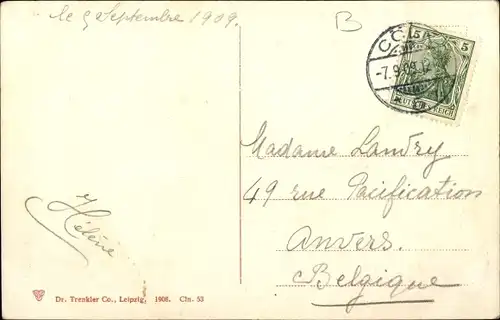 le 9 Septembre 1909.
B
5 5
-7.9.09.
DEUTSCHES REICH
Madame Landry
49 rue Pacification
Anvers.
Belgique
Hélène
Dr. Trenkler Co., Leipzig, 1908. Cln. 53